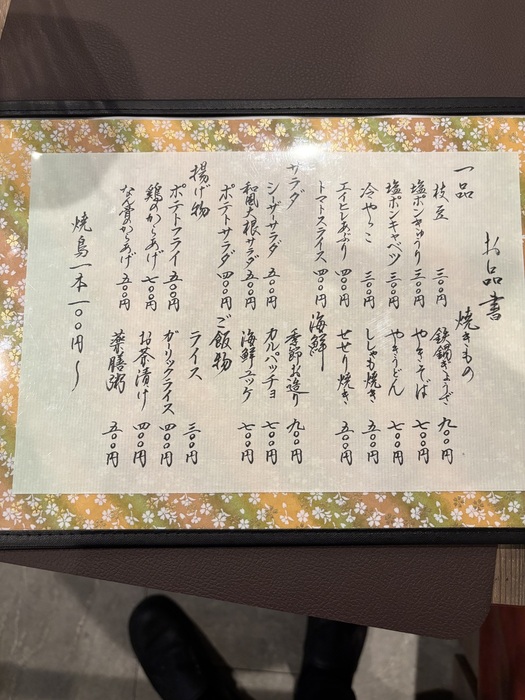 お品書
一品
枝豆 三〇〇円
塩ポンきゅうり 三〇〇円
塩ポンキャベツ 三〇〇円
冷やっこ 三〇〇円
エイヒレあぶり 四〇〇円
トマトスライス 四〇〇円
サラダ
シーザーサラダ 五〇〇円
和風大根サラダ 五〇〇円
ポテトサラダ 四〇〇円
揚げ物
ポテトフライ 五〇〇円
鶏のからあげ 七〇〇円
なん骨のからあげ 五〇〇円
焼きもの
鉄鍋ぎょうざ 九〇〇円
やきそば 七〇〇円
やきうどん 七〇〇円
ししゃも焼き 五〇〇円
せせり焼き 五〇〇円
海鮮
季節お造り 九〇〇円
カルパッチョ 七〇〇円
海鮮ユッケ 七〇〇円
ご飯物
ライス 三〇〇円
ガーリックライス 四〇〇円
お茶漬け 四〇〇円
薬膳粥 五〇〇円
焼鳥一本一〇〇円〜